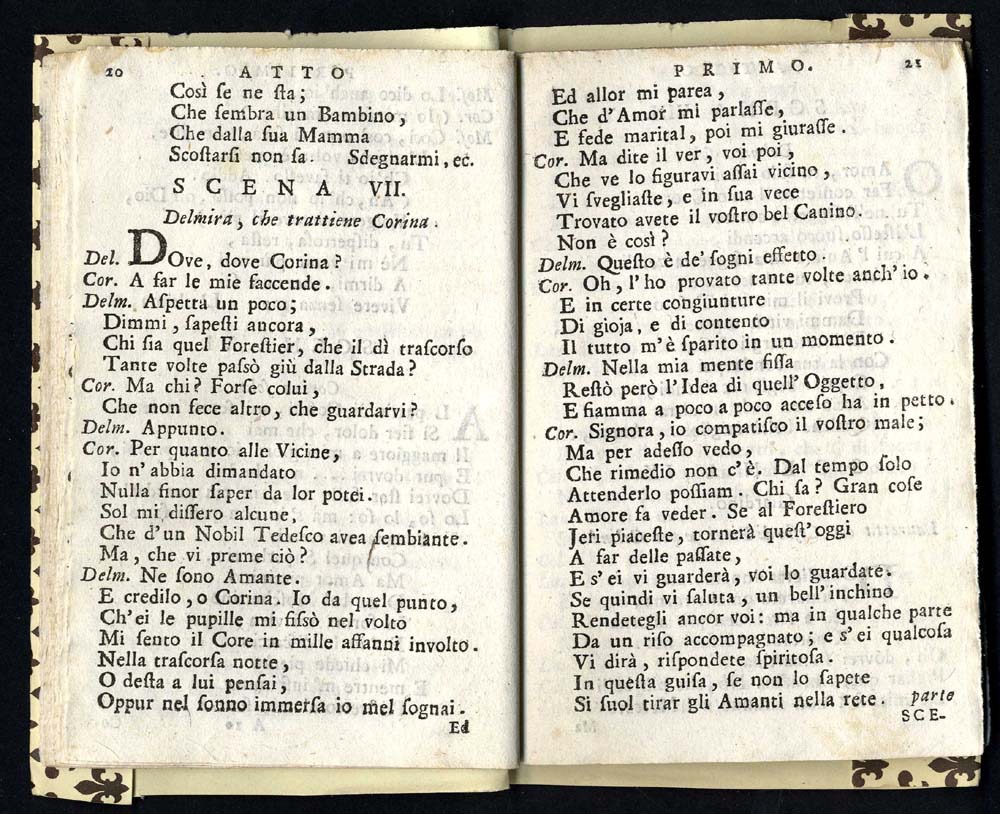 20 ATTO
Così ſe ne ſta;
Che ſembra un Bambino,
Che dalla ſua Mammá
Scoſtarſi non ſa. Sdegnarmi, ec.
SCENA VII.
Delmira, che trattiene Corina.
Del. DOve, dove Corina?
Cor. A far le mie faccende.
Delm. Aſpetta un poco;
Dimmi, ſapeſti ancora,
Chi ſia quel Foreſtier, che il dì traſcorſo
Tante volte paſsò giù dalla Strada?
Cor. Ma chi? Forſe colui,
Che non fece altro, che guardarvi?
Delm. Appunto.
Cor. Per quanto alle Vicine,
Io n'abbia dimandato
Nulla finor ſaper da lor potei.
Sol mi diſſero alcune,
Che d'un Nobil Tedeſco avea ſembiante.
Ma, che vi preme ciò?
Delm. Ne ſono Amante.
E credilo, o Corina. Io da quel punto,
Ch'ei le pupille mi fiſsò nel volto
Mi ſento il Core in mille affanni involto.
Nella traſcorſa notte,
O deſta a lui penſai,
Oppur nel ſonno immerſa io mel ſognai.
Ed
PRIMO. 21
Ed allor mi parea,
Che d'Amor mi parlaſſe,
E fede marital, poi mi giuraſſe.
Cor. Ma dite il ver, voi poi,
Che ve lo figuravi aſſai vicino,
Vi ſvegliaſte, e in ſua vece
Trovato avete il voſtro bel Canino.
Non è così?
Delm. Queſto è de' ſogni effetto.
Cor. Oh, l'ho provato tante volte anch'io.
E in certe congiunture
Di gioja, e di contento
Il tutto m'è ſparito in un momento.
Delm. Nella mia mente fiſſa
Reſtò però l'Idea di quell'Oggetto,
E fiamma a poco a poco acceſo ha in petto.
Cor. Signora, io compatiſco il voſtro male;
Ma per adeſſo vedo,
Che rimedio non c'è. Dal tempo ſolo
Attenderlo poſſiam. Chi ſa? Gran coſe
Amore fa veder. Se al Foreſtiero
Jeri piaceſte, tornerà queſt'oggi
A far delle paſſate,
E s'ei vi guarderà, voi lo guardate.
Se quindi vi ſaluta, un bell'inchino
Rendetegli ancor voi: ma in qualche parte
Da un riſo accompagnato; e s'ei qualcoſa
Vi dirà, riſpondete ſpiritoſa.
In queſta guiſa, ſe non lo ſapete
Si ſuol tirar gli Amanti nella rete. parte
SCE-